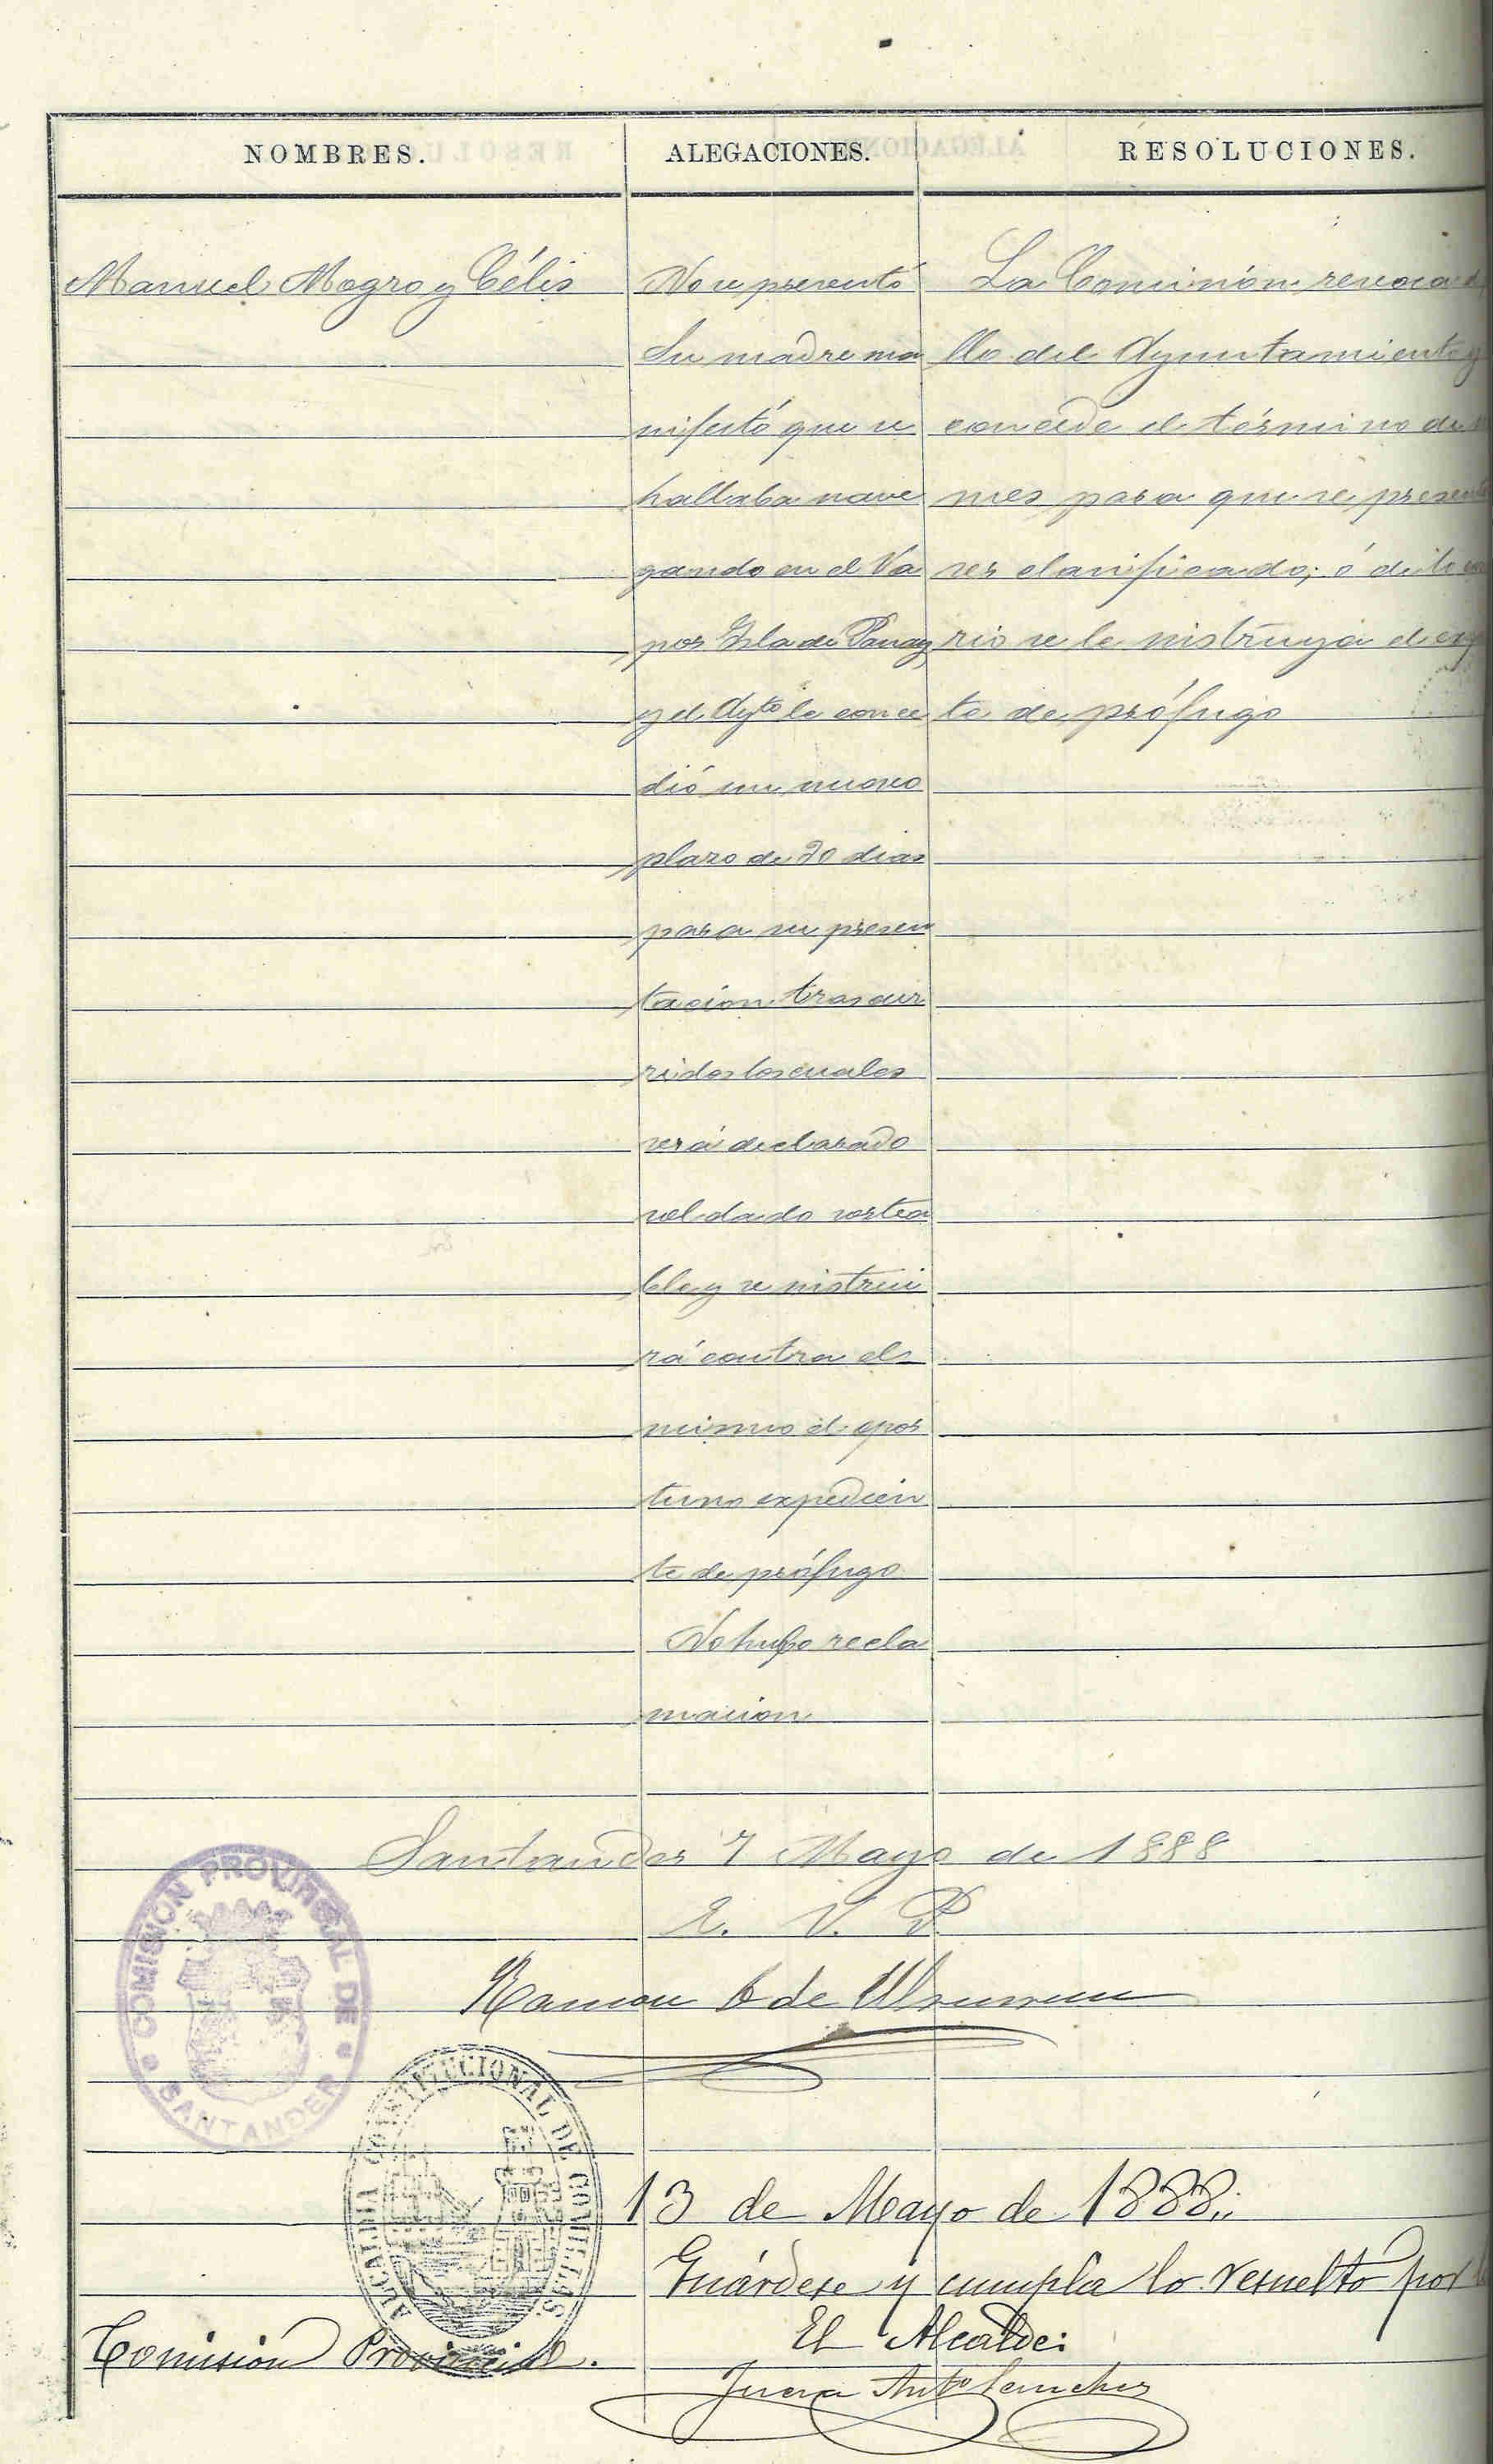 NOMBRES.
ALEGACIONES.
RESOLUCIONES.
Manuel Mogro y Célis
No se presentó
Su madre ma
nifestó que se
hallaba nave
gando en el Va
por Isla de Panay
y el Aytº le conce
dió un nuevo
plazo de 20 dias
para su presen
tacion trascur
ridos los cuales
será declarado
soldado sortea
ble y se instrui
rá contra el
mismo el opor
tuno expedien
te de prófugo
No hubo recla
macion
La Comisión revoca
llo del Ayuntamiento y
concede el término de
mes para que se present
ser clasificado; ó de lo con
rio se le instruya el exp
te de prófugo
Santander 7 Mayo de 1888
E. V. P.
Ramon de
COMISIÓN PROVINCIAL DE SANTANDER
ALCALDIA CONSTITUCIONAL DE COMILLAS.
13 de Mayo de 1888.
Guárdese y cumpla lo resuelto por
Comisión Provincial.
El Alcalde:
Juan Antº Sanchez